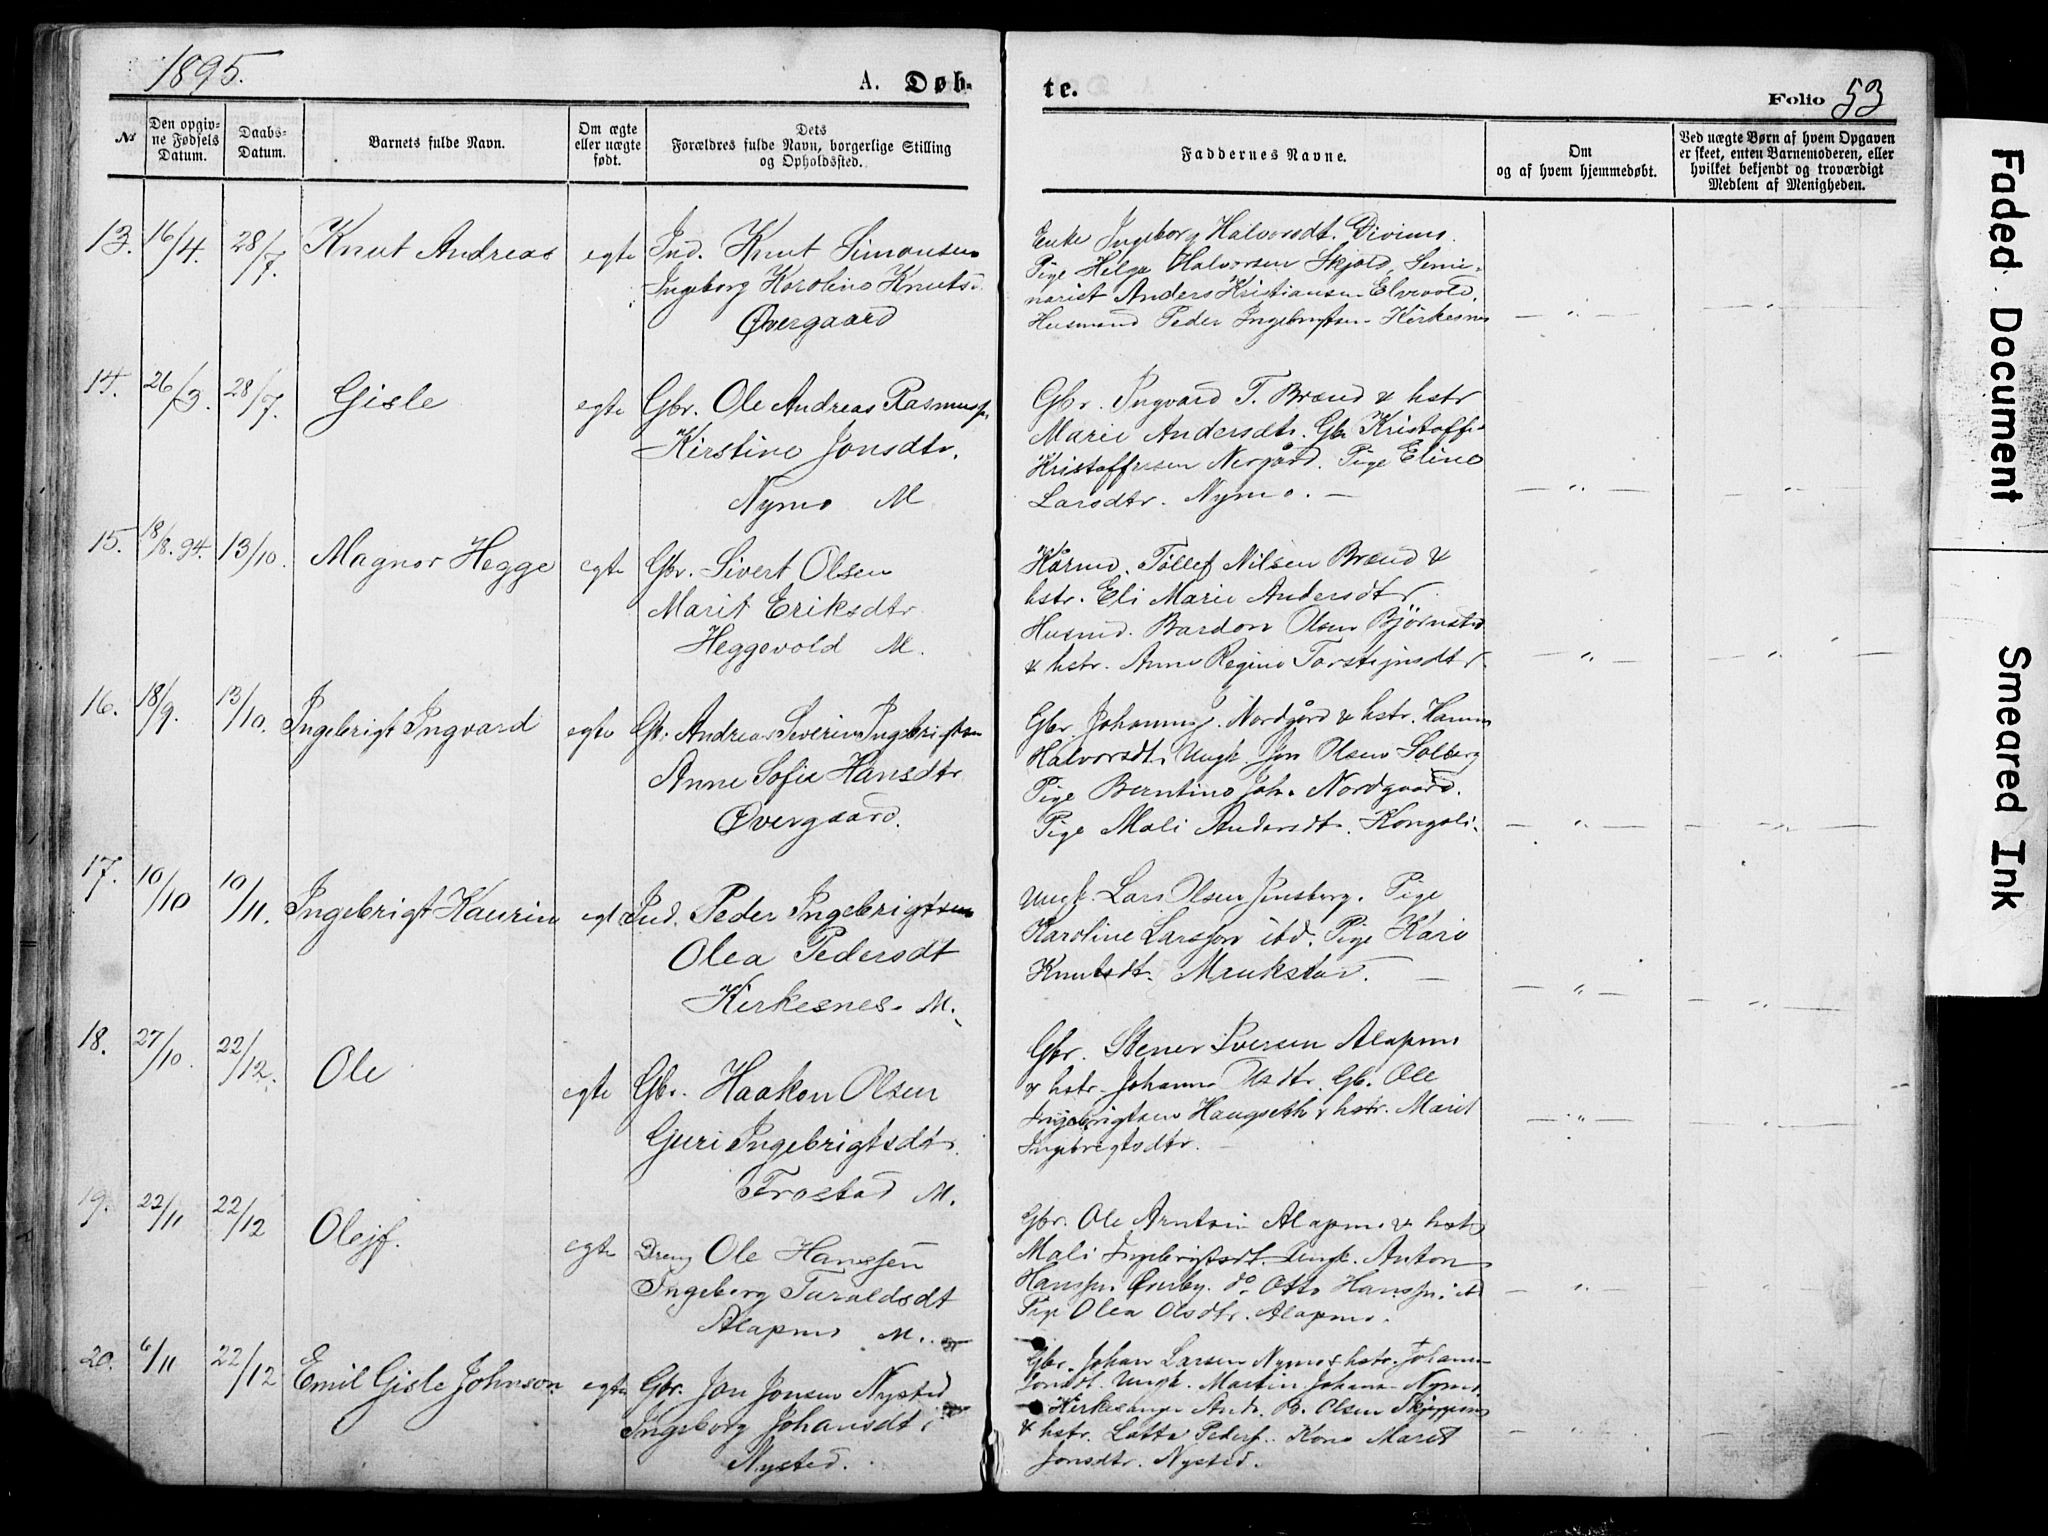 1895.
A. Døb-
te.
Folio 53
№
Den opgiv-
ne Fødsels
Datum.
Daabs-
Datum.
Barnets fulde Navn.
Om ægte
eller uægte
født.
Dets
Forældres fulde Navn, borgerlige Stilling
og Opholdssted.
Faddernes Navne.
Om
og af hvem hjemmedøbt.
Ved uægte Børn af hvem Opgaven
er skeet, enten Barnemoderen, eller
hvilket bekjendt og troværdigt
Medlem af Menigheden.
13. 16/4. 28/7. Knut Andreas egte Ind. Knut Simonsen
Ingeborg Karoline Knutsd.
Øvergaard
Enke Ingeborg Halvorsdt. Divimo.
Pige Helga Halvorsen Skjold, Semi-
narist Anders Kristiansen Elvevold.
Husmand Peder Ingebrigtsen Kirkesnes — " —
— " —
14. 26/3. 28/7. Gisle egte Gbr. Ole Andreas Rasmuss.
Kirstine Jonsdtr.
Nymo M
Gbr. Ingvard T. Brænd & hstr
Marie Andersdtr. Gbr Kristoffer
Kristoffersen Nergård. Pige Eline
Larsdtr. Nymo. — — " — — " —
15. 18/8. 94. 13/10. Magnor Hegge egte Gbr. Sivert Olsen
Marit Eriksdtr
Heggevold M.
Kårmd. Tollef Nilsen Brænd &
hstr. Eli Marie Andersdtr.
Husmd. Bardon Olsen Bjørnstad
& hstr. Anne Regine Torsteinsdtr. — " — — " —
16. 18/9. 13/10. Ingebrigt Ingvard egte Gbr. Andreas Severin Ingebrigtsen
Anne Sofie Hansdtr
Øvergaard.
Gbr. Johannes J. Nordgård & hstr. Hanna
Halvorsdt. Ungk. Jon Olsen Solberg
Pige Berntine Joh. Nordgaard.
Pige Mali Andersdt. Kongsli. — " — — " —
17. 10/10 10/11. Ingebrigt Kaurin egte Ind. Peder Ingebrigtsen
Olea Pedersdt
Kirkesnes M.
Ungk. Lars Olsen Jensberg. Pige
Karoline Larssen ibd. Pige Kari
Knutsdt. Mrukstad. — — " — — " —
18. 27/10. 22/12. Ole egte Gbr. Haakon Olsen
Guri Ingebrigtsdtr.
Frostad M.
Gbr. Stener Iversen Alapmo
& hstr. Johanna Olsdtr. Gb. Ole
Ingebrigtsen Haugseth & hstr. Marit
Ingebrigtsdtr. — " —
19. 22/11 22/12 Olejf. egte Dreng Ole Hanssen
Ingeborg Taraldsdt
Alapmo M.
Gbr. Ole Arntsen Alapmo & hstr
Mali Ingebrigtsdt. Ungk. Anton
Hanssen Øverby. do. Otto Hanssen ibd
Pige Olea Olsdtr. Alapmo. — " —
20. 6/11 22/12 Emil Gisle Johnson egte Gbr. Jon Jonsen Nysted
Ingeborg Johansdt.
Nysted.
Gbr. Johan Larsen Nymo & hstr. Johanna
Jonsdt. Ungk. Martin Johans. Nymo.
Kirkesanger And. B. Olsen
& hstr. Lotta Peders. Kone Marit
Jonsdtr. Nysted. — " —
Faded Document
Smeared Ink